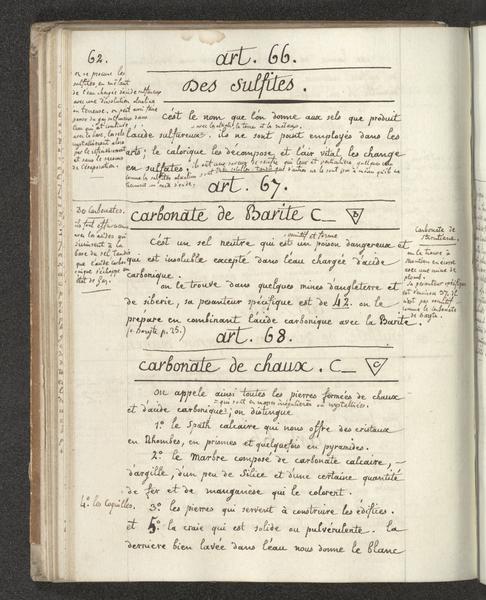 62.
art. 66.
Des Sulfites.
on se procure les
sulfites, en mêlant
de l'eau chargée d'acide sulfureux
avec une dissolution alcaline
ou terreuse. on peut aussi faire
passer du gaz sulfureux dans
l'eau qui
avec la base, les sels
crystallisent alors
par le refroidissement
et sans le secours
de l'évaporation.
c'est le nom que l'on donne aux sels que produit
avec la terre et les métaux.
l'acide sulfureux. ils ne sont point employés dans les
arts; le calorique les décompose et l'air vital les change
en sulfates.
art. 67.
Des Carbonates.
ils font effervescence
avec les acides qui
s'unissent à la
base du sel tandis
que l'acide carbo-
nique s'échappe en
état de Gaz.
carbonate de Barite C_ B
vomitif et forme
C'est un sel neutre qui est un poison dangereux et
qui est insoluble excepté dans l'eau chargée d'acide
carbonique.
on le trouve dans quelques mines d'angleterre et
de siberie, sa pesanteur spécifique est de 42. on le
prepare en combinant l'acide carbonique avec la Barite.
(v. Baryte p. 25.)
Carbonate de
Strontiane.
on le trouve à
Strontian en écosse
avec une mine de
plomb.
sa pesanteur spécifique
est d'environ 37. il
n'est pas vomitif
comme le carbonate
de Baryte.
art. 68.
carbonate de chaux. C_ C
on appele ainsi toutes les pierres formées de chaux
qui sont en masses irrégulières ou crystallisées.
et d'acide carbonique; on distingue
1.° le spath calcaire qui nous offre des cristaux
en Rhombes, en prismes et quelquefois en pyramides.
2.° le Marbre composé de carbonate calcaire,
d'argille, d'un peu de Silice et d'une certaine quantité
de fer et de manganese qui le colorent.
4.° les Coquilles.
3.° les pierres qui servent à construire les édifices.
et 5.° la craie qui est solide ou pulvérulente. la
derniere bien lavée dans l'eau nous donne le blanc